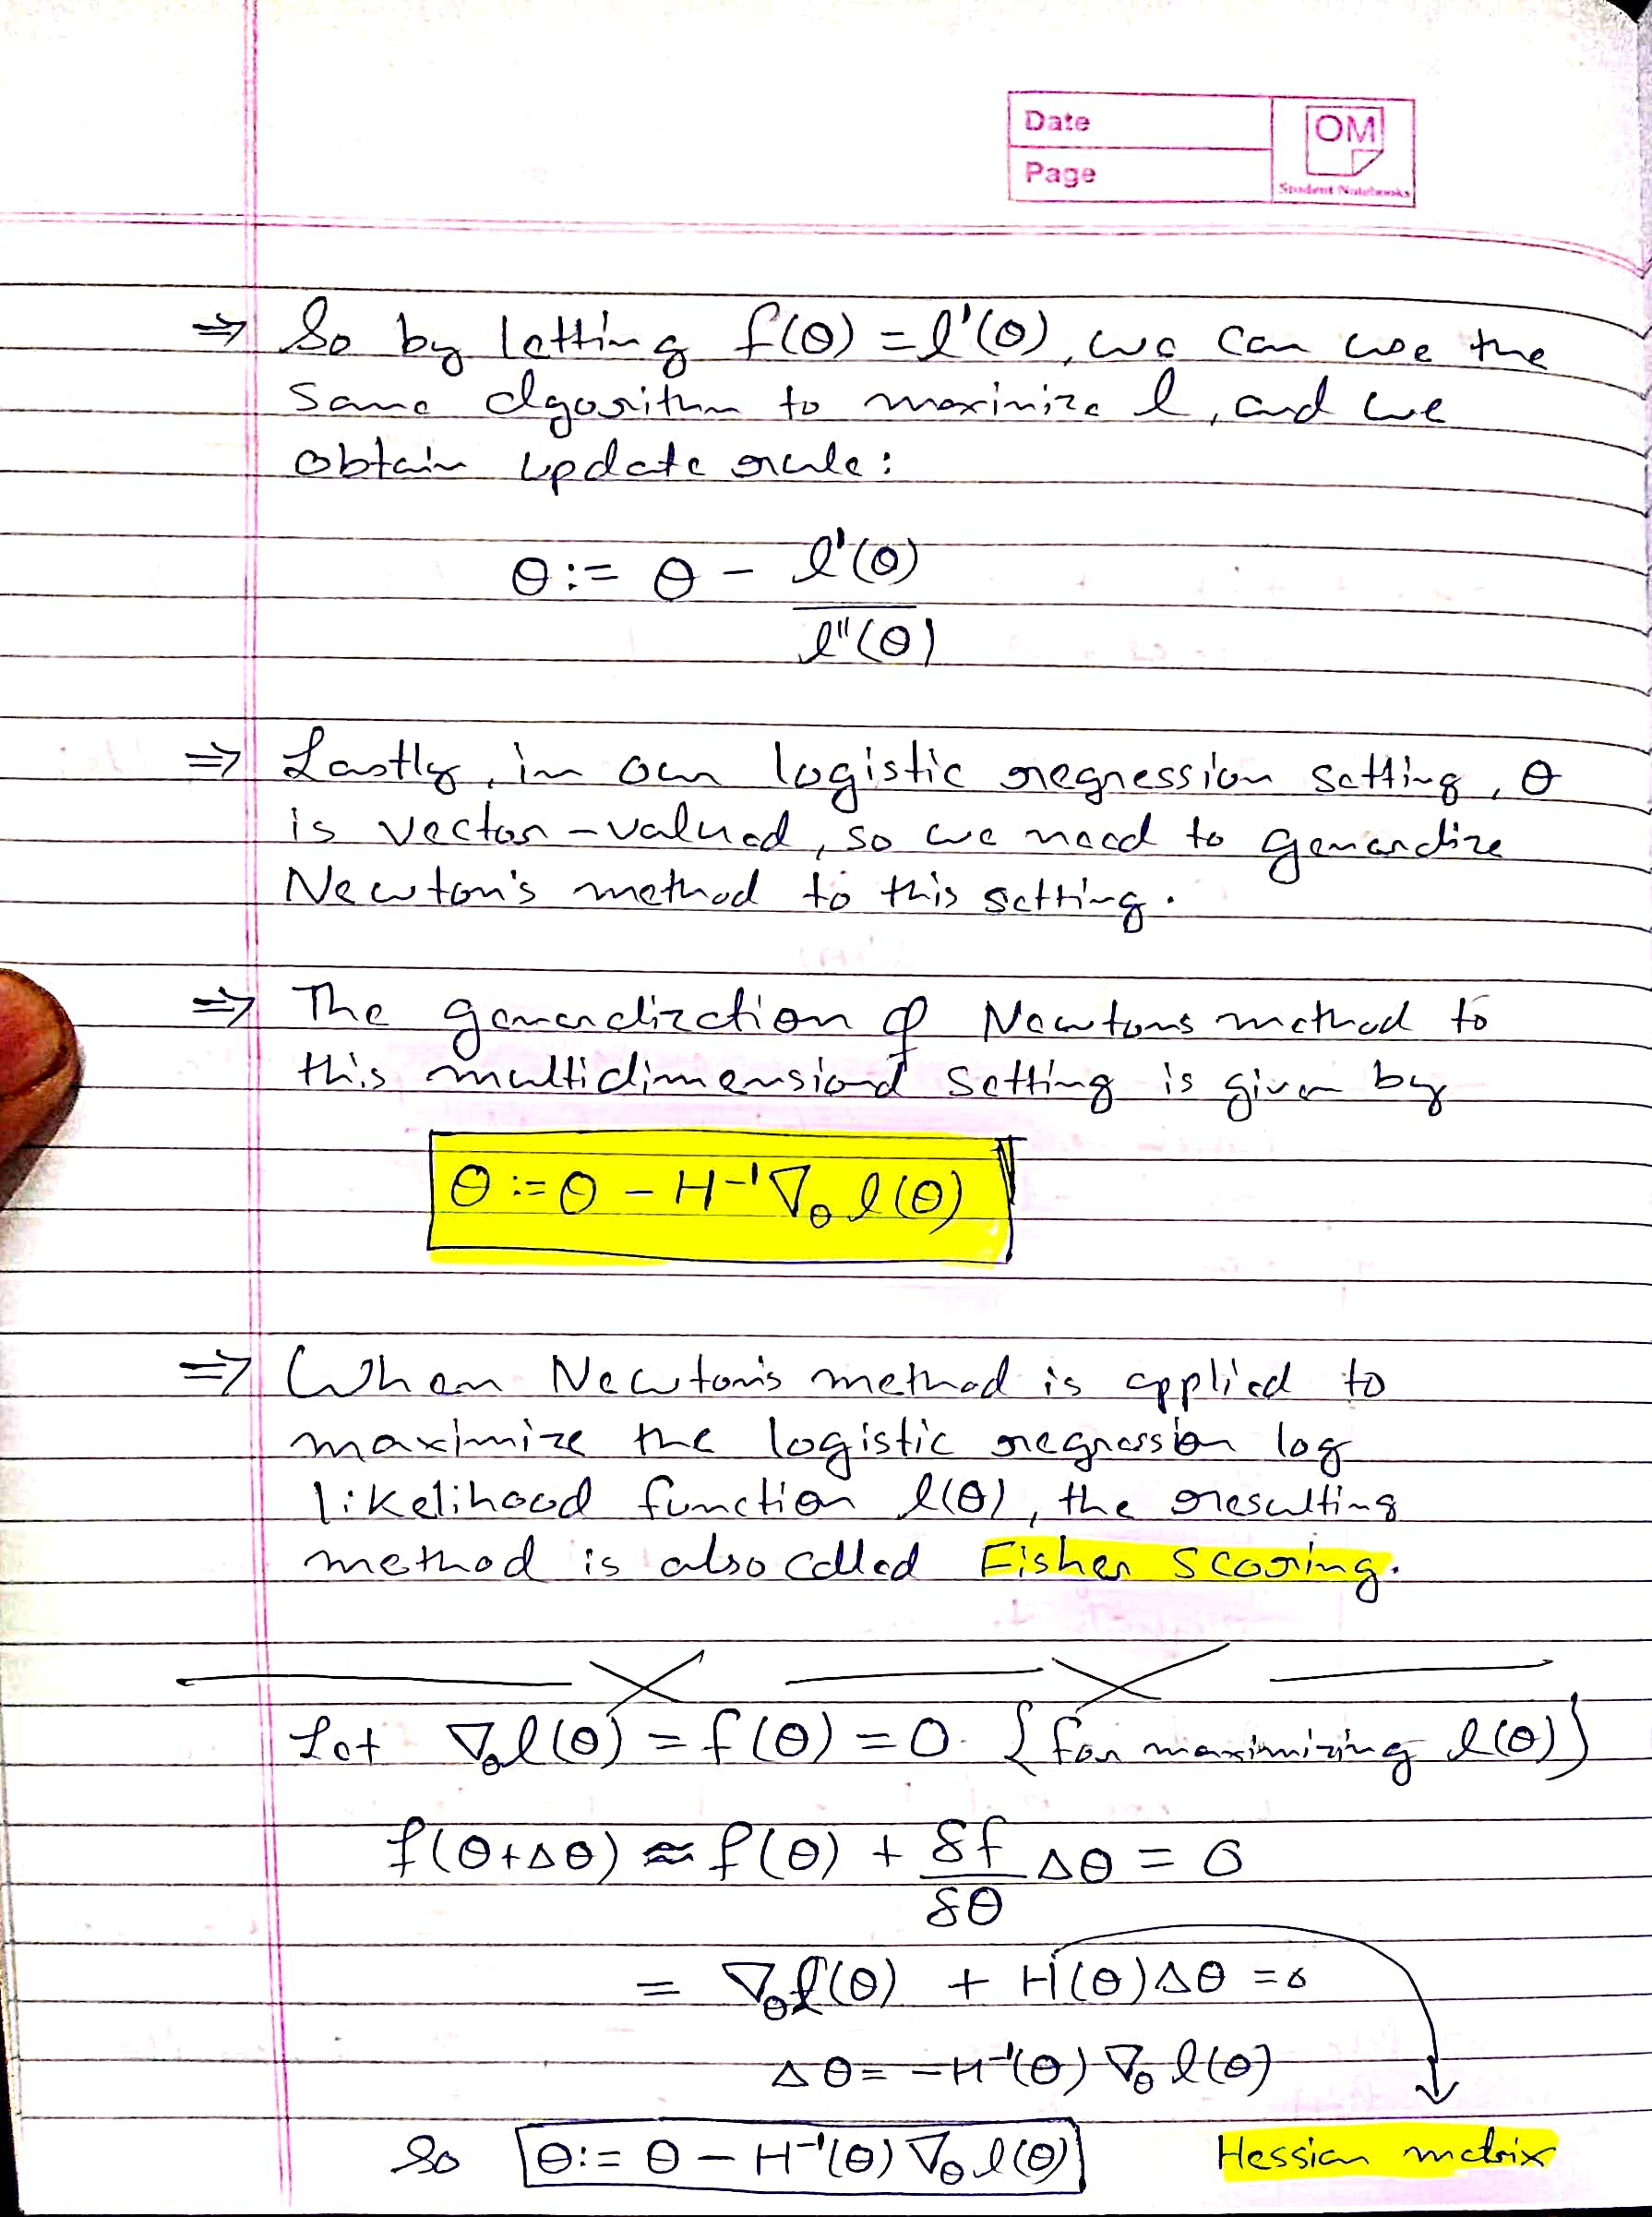 Date
Page
OM
Student Notebooks
⇒ So by letting f(θ) = l'(θ), we can use the
same algorithm to maximize l, and we
obtain update rule:
θ := θ - l'(θ)
l''(θ)
⇒ Lastly, in our logistic regression setting, θ
is vector-valued, so we need to generalize
Newton's method to this setting.
⇒ The generalization of Newtons method to
this multidimensional setting is given by
θ := θ - H⁻¹∇θ l(θ)
⇒ When Newton's method is applied to
maximize the logistic regression log
likelihood function l(θ), the resulting
method is also called Fisher scoring.
Let ∇θl(θ) = f(θ) = 0 {for maximizing l(θ)}
f(θ+Δθ) ≈ f(θ) + δf Δθ = 0
δθ
= ∇θl(θ) + H(θ)Δθ = 0
Δθ = -H⁻¹(θ) ∇θ l(θ)
So θ := θ - H⁻¹(θ) ∇θ l(θ) Hessian matrix